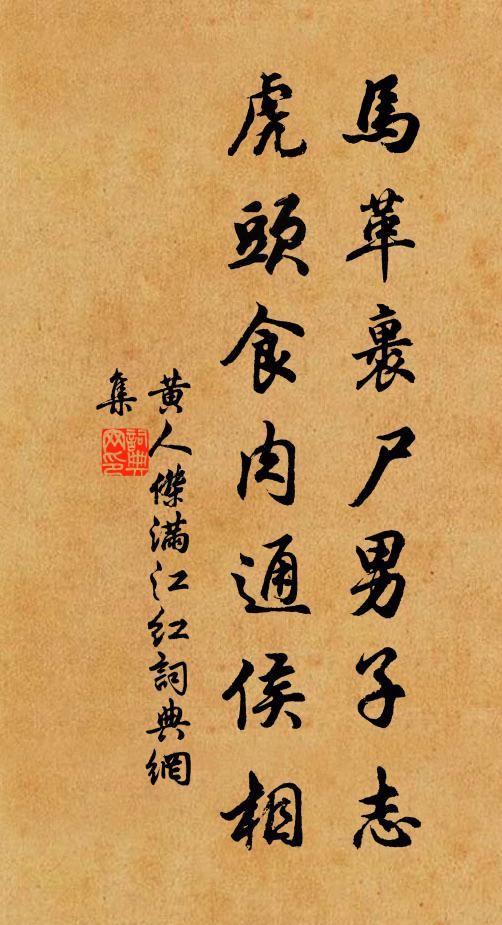 馬革裹尸男子志
虎頭食肉通侯相
黄人傑滿江紅詞典網
集
詞典網印